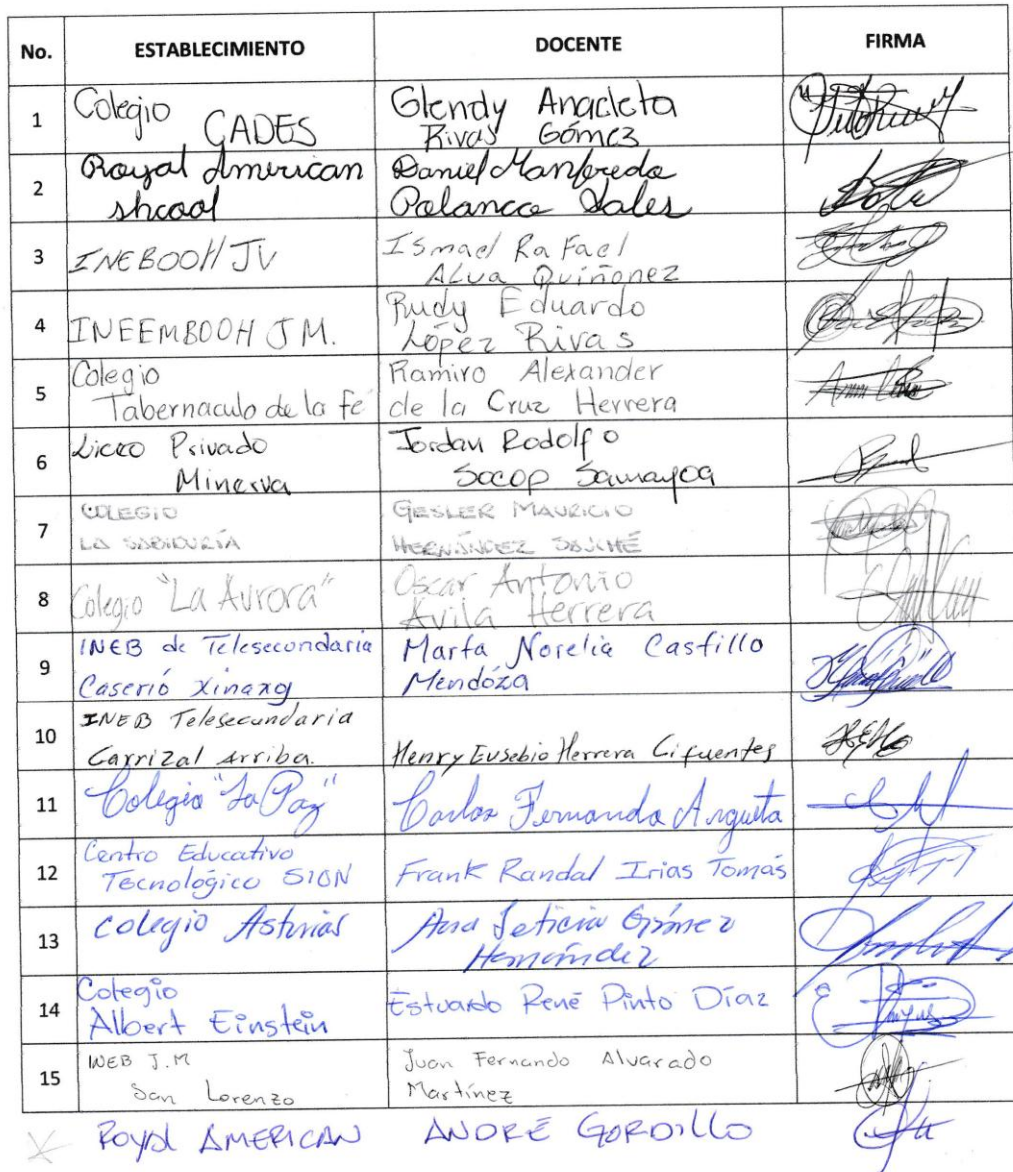 No. ESTABLECIMIENTO DOCENTE FIRMA
1 Colegio CADES Glendy Anacleta Rivas Gómez
2 Royal American shcool Daniel Manfredo Polanco Sales
3 INEBOOH JV Ismael Rafael ALva Quiñonez
4 INEEMBOOH J M. Rudy Eduardo López Rivas
5 Colegio Tabernaculo de la fé Ramiro Alexander de la Cruz Herrera
6 Liceo Privado Minerva Jordan Rodolfo Socop Samayoa
7 COLEGIO LA SABIDURÍA GESLER MAURICIO HERNÁNDEZ
8 Colegio "La Aurora" Oscar Antonio Avila Herrera
9 INEB de Telesecundaria Caserió Xinaxoj Marta Norelia Castillo Mendóza
10 INEB Telesecundaria Carrizal Arriba. Henry Eusebio Herrera Cifuentes
11 Colegio "La Paz" Carlos Fernando Argueta
12 Centro Educativo Tecnológico SION Frank Randal Irias Tomás
13 Colegio Asturias Ana Leticia Gómez Hernández
14 Colegio Albert Einstein Estuardo René Pinto Díaz
15 INEB J.M San Lorenzo Juan Fernando Alvarado Martínez
ROYAL AMERICAN ANDRÉ GORDILLO